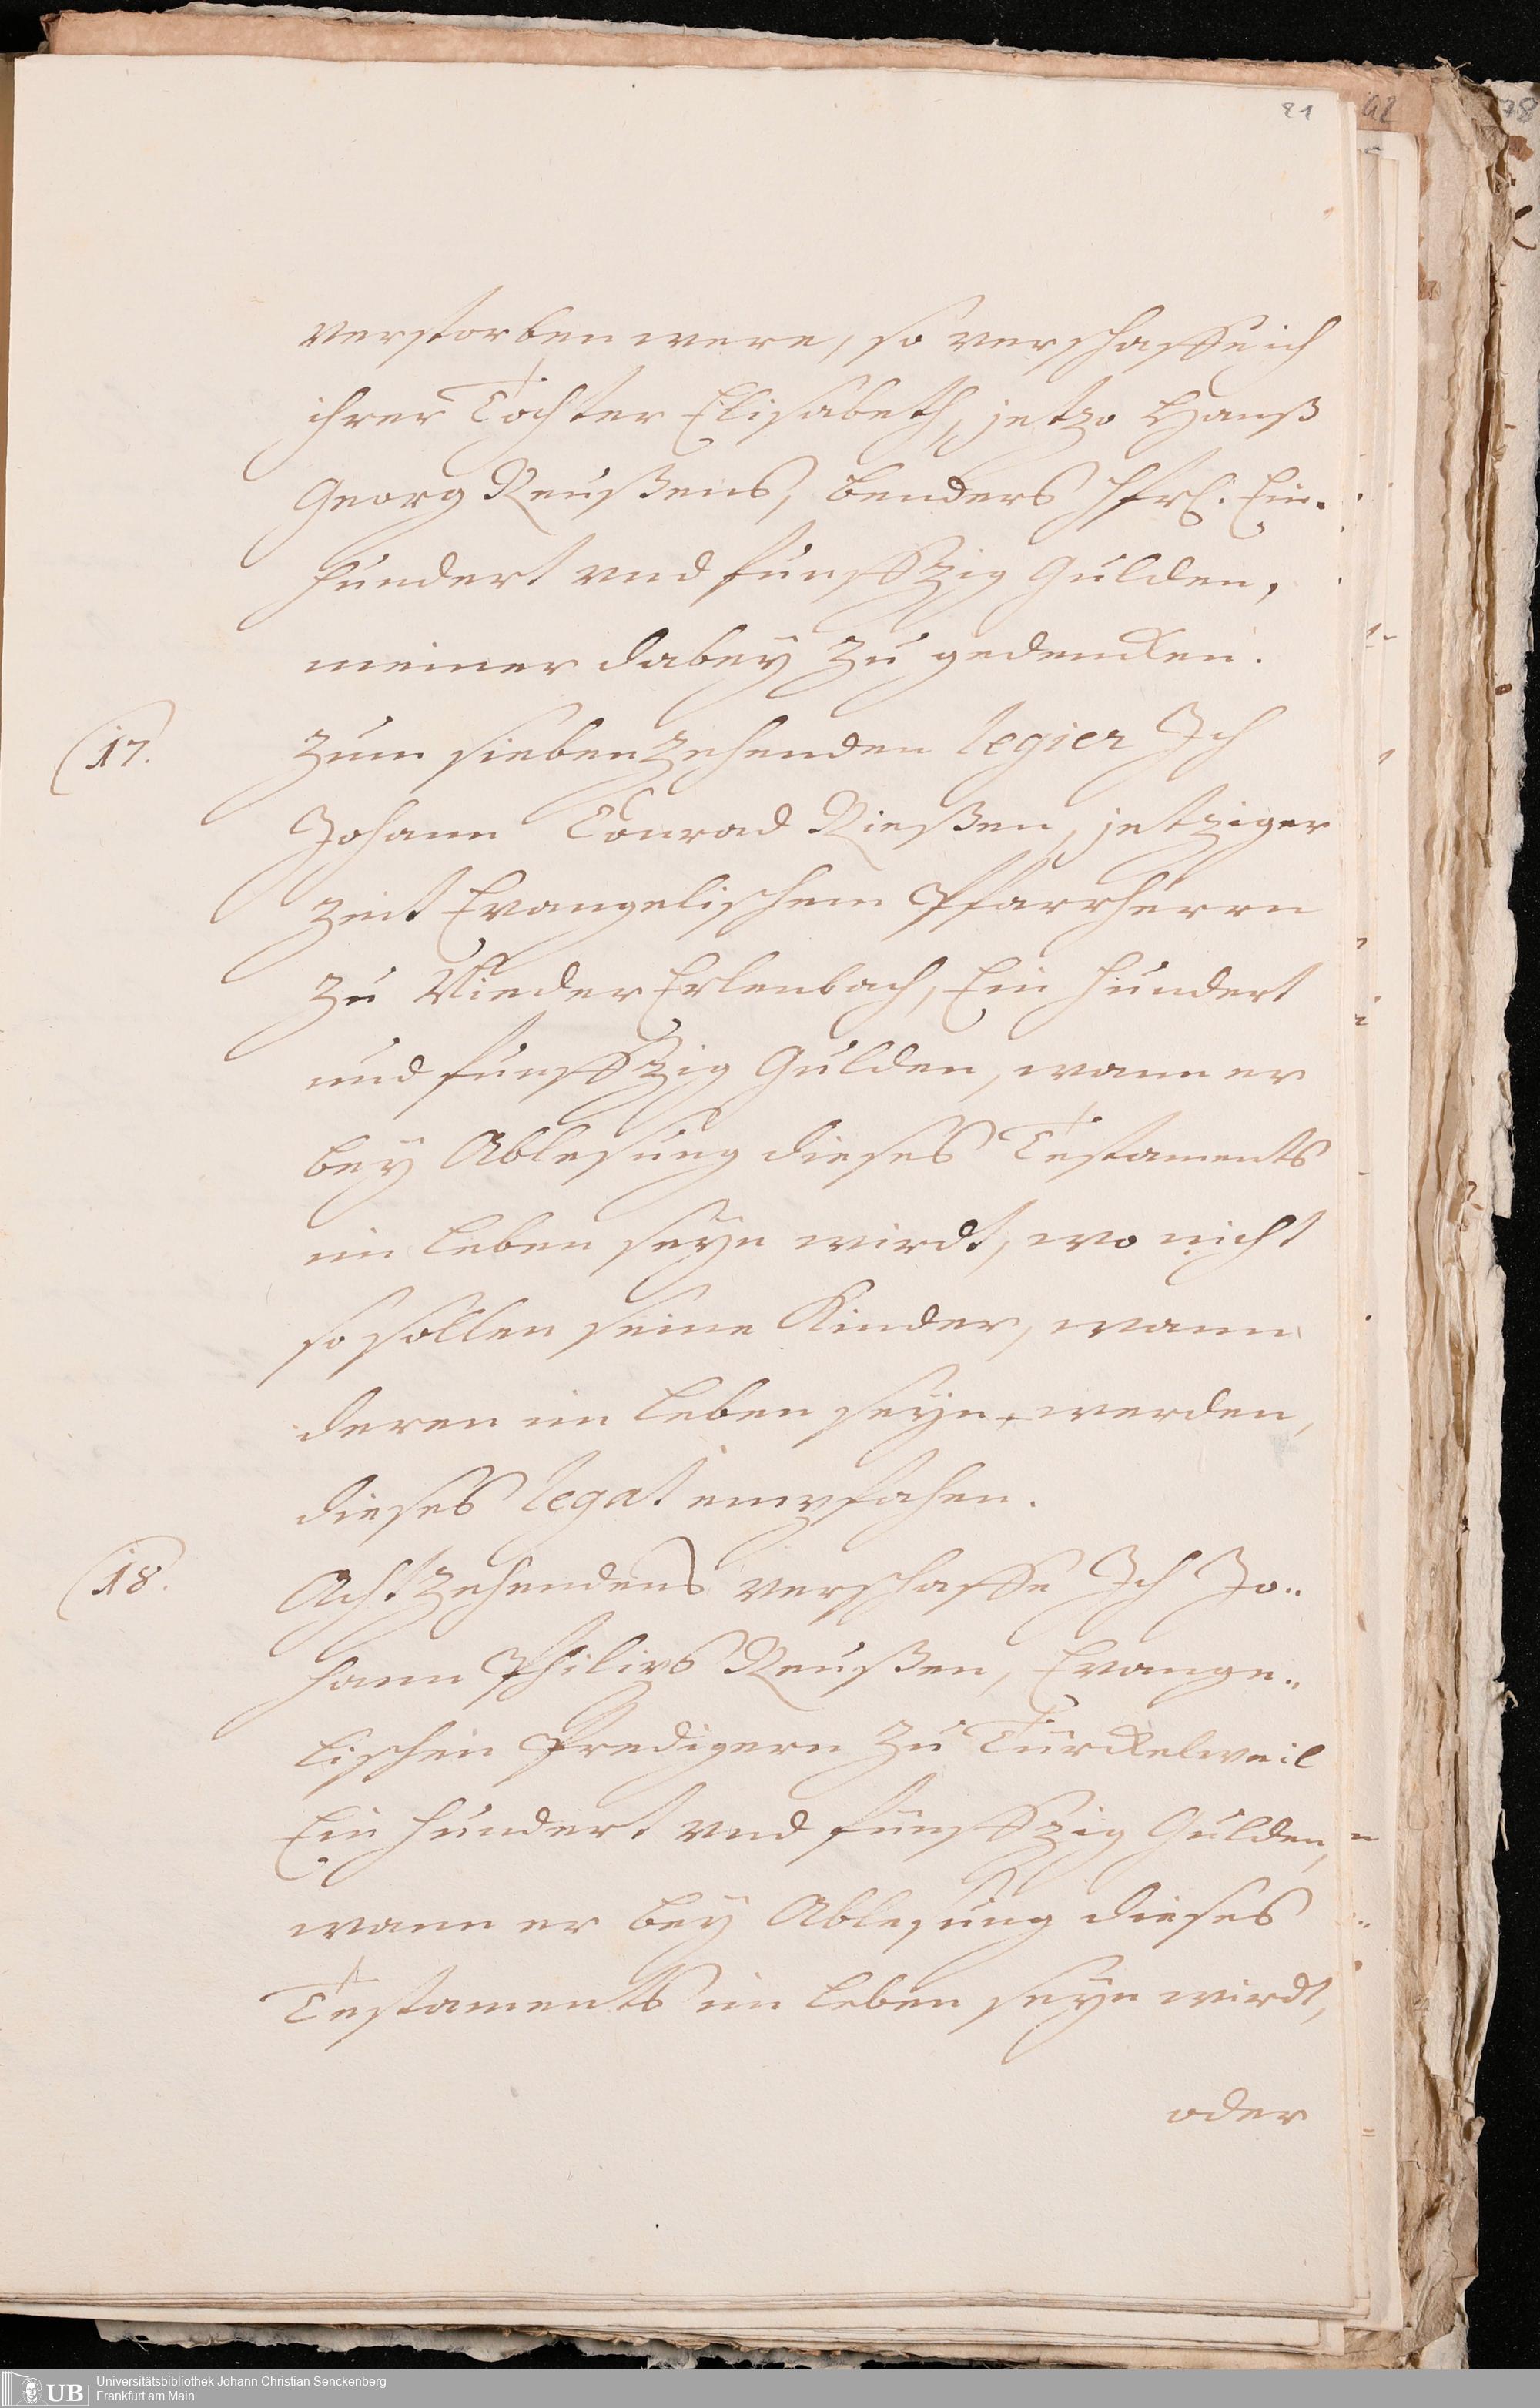 81
42
78
verstorben were, so verschaffe ich
ihrer Tochter Elisabeth, jetzo Hanß
Georg Reußens, benders hfrl. Ein-
hundert vnd fünffzig Gulden,
meiner dabey zu gedencken.
17.
Zum siebenzehenden legier Ich
Johann Conrad Rießen, jetziger
zeit Evangelischem Pfarrherrn
zu Nieder Erlenbach, Ein hundert
und fünffzig Gulden, wann er
bey Ablesung dieses Testaments
im leben seyn wirdt, wo nicht
so sollen seine Kinder, wann
deren im leben seyn werden,
dieses legat empfahen.
18.
Achtzehendens verschaffe Ich Jo-
hann Philips Reußen, Evange-
lischen Predigern zu Türckelweil
Ein hundert vnd fünffzig Gulden,
wann er bey Ablesung dieses
Testaments im leben seyn wirdt,
oder
UB
Universitätsbibliothek Johann Christian Senckenberg
Frankfurt am Main